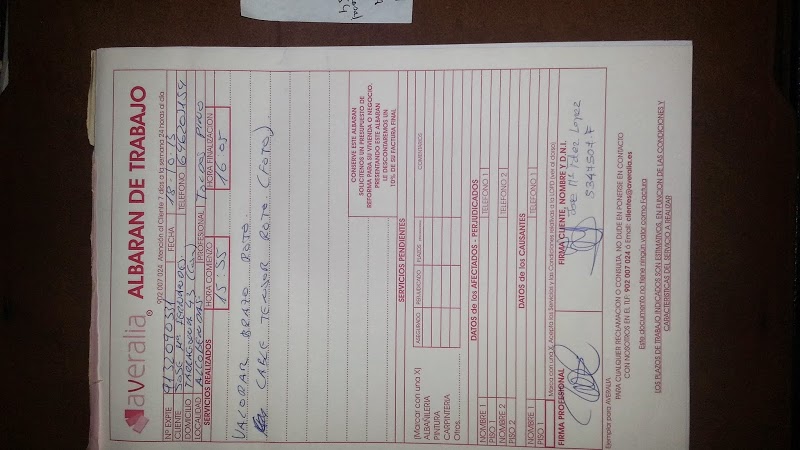 averalia®
ALBARAN DE TRABAJO
902 007 024 Atención al Cliente 7 días a la semana 24 horas al día.
Nº EXPTE. FECHA 18-10-13
CLIENTE JOSE Mª TELEFONO
DOMICILIO
LOCALIDAD ALCOBENDAS PROFESIONAL
SERVICIOS REALIZADOS HORA COMIENZO 15:55 HORA FINALIZACIÓN 16:05
VALORAR BRAZO ROTO
CABLE TENSOR ROTO (FOTO)
CONSERVE ESTE ALBARAN
SOLICITENOS UN PRESUPUESTO DE
REFORMA PARA SU VIVIENDA O NEGOCIO.
PRESENTANDO ESTE ALBARAN
LE DESCONTAREMOS UN
10% DE SU FACTURA FINAL
SERVICIOS PENDIENTES
(Marcar con una X) ASEGURADO PERJUDICADO PLAZOS COMENTARIOS
ALBAÑILERIA
PINTURA
CARPINTERIA
Otros
DATOS de los AFECTADOS - PERJUDICADOS
NOMBRE 1 TELEFONO 1
PISO 1
NOMBRE 2 TELEFONO 2
PISO 2
DATOS de los CAUSANTES
NOMBRE 1 TELEFONO 1
PISO 1
Marcar con una X, Acepta los Servicios y las Condiciones relativas a la LOPD (ver al dorso)
FIRMA PROFESIONAL FIRMA CLIENTE, NOMBRE Y D.N.I.
Jose Mª Lopez
Ejemplar para AVERALIA
PARA CUALQUIER RECLAMACION O CONSULTA, NO DUDE EN PONERSE EN CONTACTO
CON NOSOTROS EN EL TLF: 902 007 024 ó Email: clientes@averalia.es
Este documento no tiene ningún valor como Factura
LOS PLAZOS DE TRABAJO INDICADOS SON ESTIMATIVOS, EN FUNCION DE LAS CONDICIONES Y
CARACTERISTICAS DEL SERVICIO A REALIZAR